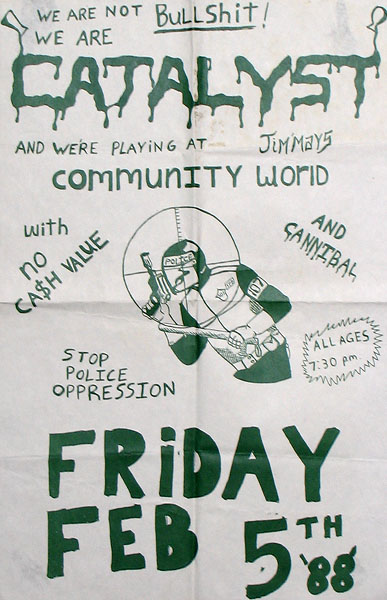 WE ARE NOT BULLSHIT!
WE ARE
CATALYST
AND WE'RE PLAYING AT JIM'MAYS
COMMUNITY WORLD
with
NO
CA$H VALUE
AND
CANNIBAL
POLICE
102
STOP
POLICE
OPPRESSION
ALL AGES
7:30 pm.
FRIDAY
FEB 5TH
'88'